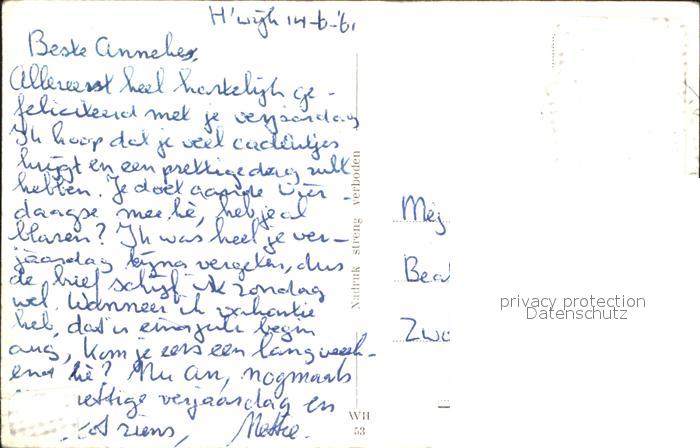 H'wijk 14-6-'61
Beste Annekes,
Allereerst heel hartelijk ge-
feliciteerd met je verjaardag
Ik hoop dat je veel cadeautjes
krijgt en een prettige dag zult
hebben. Je doet aan de vier-
daagse mee hè, heb je al
blaren? Ik was heel je ver-
jaardag bijna vergeten, dus
de brief schrijf ik zondag
wel. Wanneer ik vakantie
heb, dat is eind juli begin
aug, kom je eens een lang week-
end hè? Nu An, nogmaals
prettige verjaardag en
tot ziens,
Nadruk streng verboden
WH
53
Mej
Zwo
privacy protection
Datenschutz